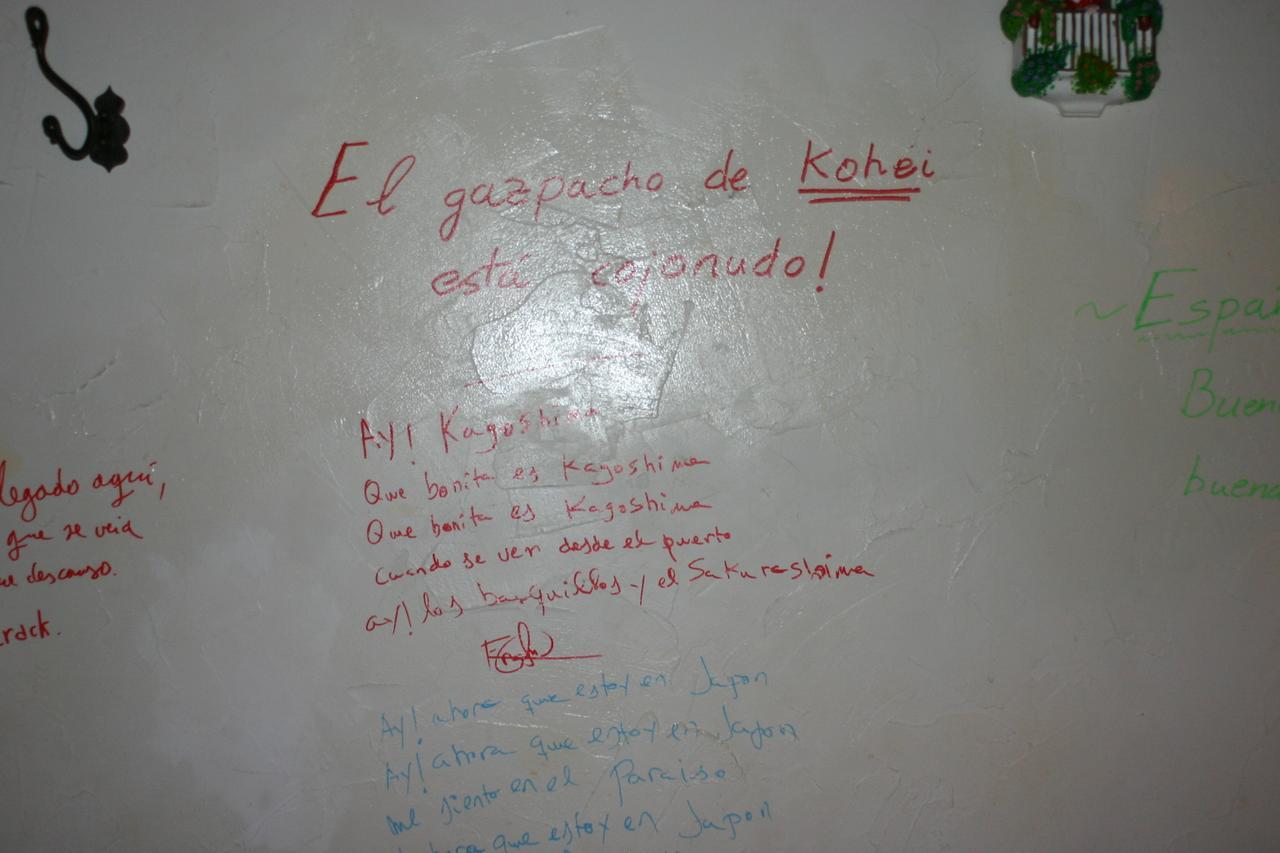 El gazpacho de Kohei
está cojonudo!
Ay! Kagoshima
Que bonita es Kagoshima
Que bonita es Kagoshima
cuando se ven desde el puerto
ay! los barquillos y el Sakurashima
Ay! ahora que estoy en Japon
Ay! ahora que estoy en Japon
me siento en el Paraiso
que estoy en Japon
legado aquí,
que se veia
descanso.
crack.
~ Españ
Buen
buena